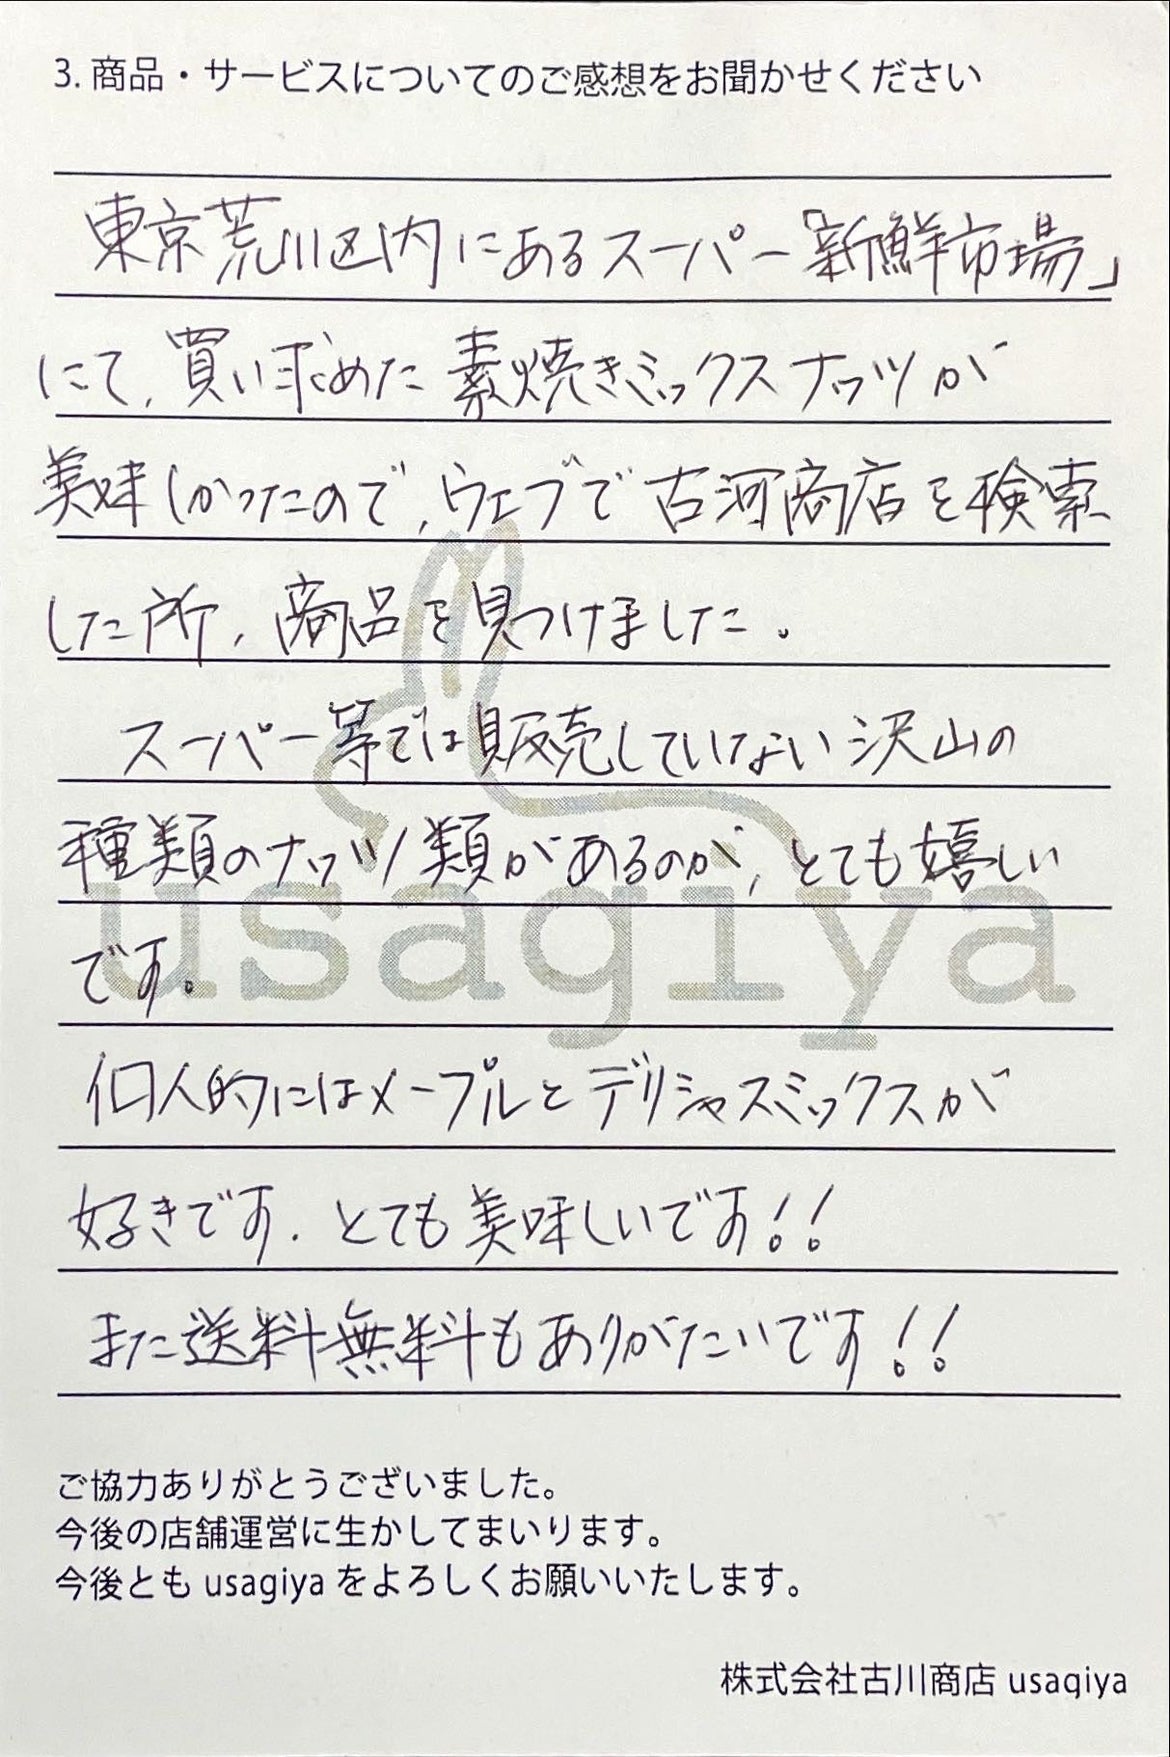 3. 商品・サービスについてのご感想をお聞かせください
東京荒川区内にあるスーパー「新鮮市場」
にて、買い求めた素焼きミックスナッツが
美味しかったので、ウェブで古河商店を検索
した所、商品を見つけました。
スーパー等では販売していない沢山の
種類のナッツ類があるのが、とても嬉しい
です。
個人的にはメープルとデリシャスミックスが
好きです。とても美味しいです!!
また送料無料もありがたいです!!
usagiya
ご協力ありがとうございました。
今後の店舗運営に生かしてまいります。
今後とも usagiya をよろしくお願いいたします。
株式会社古川商店 usagiya